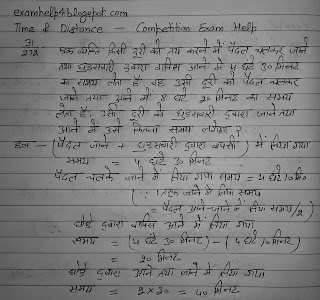 examhelp4.blogspot.com
Time & Distance — Competition Exam Help
31
272
एक व्यक्ति किसी दूरी को तय करने में पैदल चलकर जाने
तथा घुड़सवारी द्वारा वापिस आने में 4 घंटे 30 मिनट
का समय लेता है। वह उसी दूरी को पैदल चलकर
जाने तथा आने में 8 घंटे 20 मिनट का समय
लेता है, उसी दूरी को घुड़सवारी द्वारा जाने तथा
आने में उसे कितना समय लगेगा?
हल - (पैदल जाने + घुड़सवारी द्वारा वापसी) में लिया गया
समय = 4 घंटे 30 मिनट
पैदल चलके जाने में लिया गया समय = 4 घंटे 10 मि०
(∵ 1 तरफ जाने में लिया समय
= पैदल आने-जाने में लिया समय/2)
∴ घोड़े द्वारा वापिस आने में लिया गया
समय = (4 घंटे 30 मिनट) - (4 घंटे 10 मिनट)
= 20 मिनट
∴ घोड़े द्वारा आने तथा जाने में लिया गया
समय = 2 × 20 = 40 मिनट